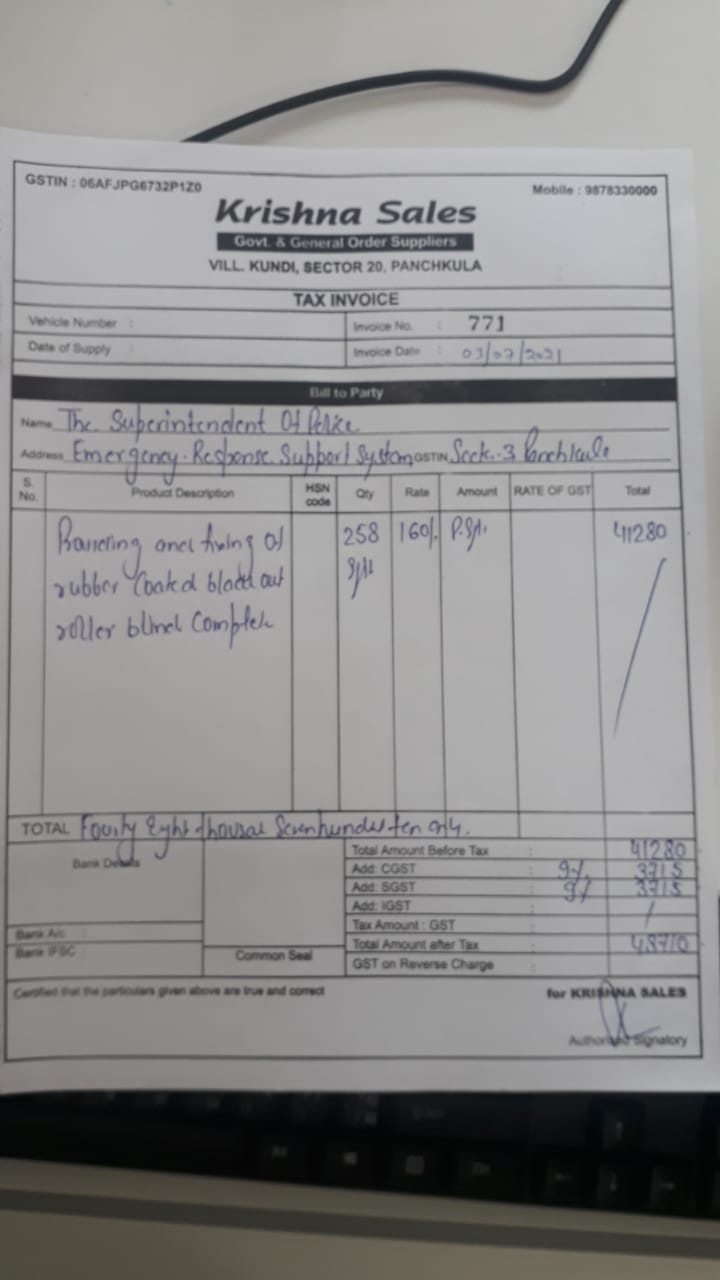 GSTIN : 06AFJPG6732P1Z0 Mobile : 9878330000
Krishna Sales
Govt. & General Order Suppliers
VILL. KUNDI, SECTOR 20, PANCHKULA
TAX INVOICE
Vehicle Number : Invoice No. : 771
Date of Supply : Invoice Date : 03/07/2021
Bill to Party
Name The Superintendent Of Police
Address Emergency Response Support System GSTIN Sect.-3 Panchkula
S. No. Product Description HSN code Qty Rate Amount RATE OF GST Total
and fixing of 258 160/. 41280
rubber Coated out
roller blind Complete
TOTAL Fourty Eight thousand Seven hundred ten only.
Total Amount Before Tax : 41280
Bank Details Add: CGST : 9% 3715
Add: SGST : 9% 3715
Add: IGST : /
Bank A/c : Tax Amount : GST :
Bank IFSC : Common Seal Total Amount after Tax : 48710
GST on Reverse Charge :
Certified that the particulars given above are true and correct for KRISHNA SALES
Authorised Signatory